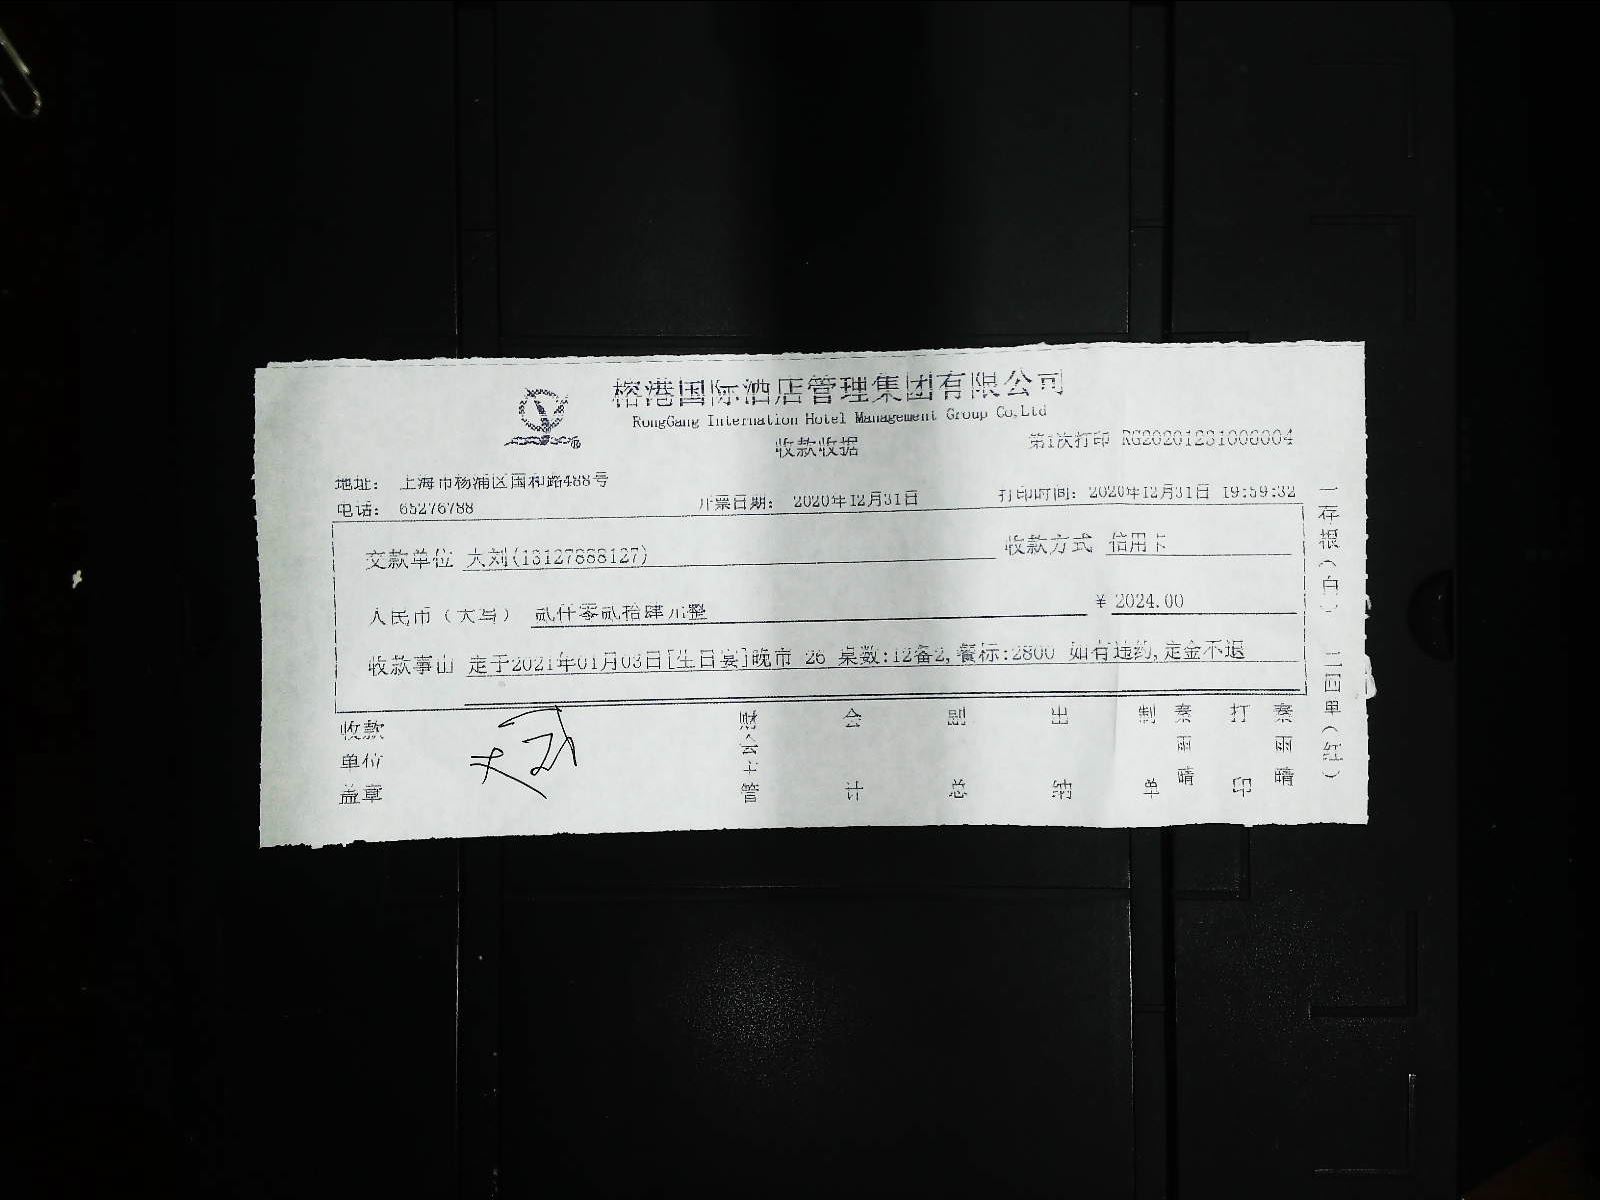 榕港国际酒店管理集团有限公司
RongGang Internation Hotel Management Group Co.Ltd
收款收据
第1次打印 RG20201231006004
地址： 上海市杨浦区国和路488号
电话： 65276788
开票日期： 2020年12月31日
打印时间： 2020年12月31日 19:59:32
交款单位 大刘(13127888127)
收款方式 信用卡
人民币（大写） 贰仟零贰拾肆元整
¥ 2024.00
收款事由 定于2021年01月03日[生日宴]晚市 26 桌数:12备2,餐标:2800 如有违约,定金不退
收款单位盖章
大刘
财会主管
会计
副总
出纳
制单 秦雨晴
打印 秦雨晴
一存根（白） 二回单（红）